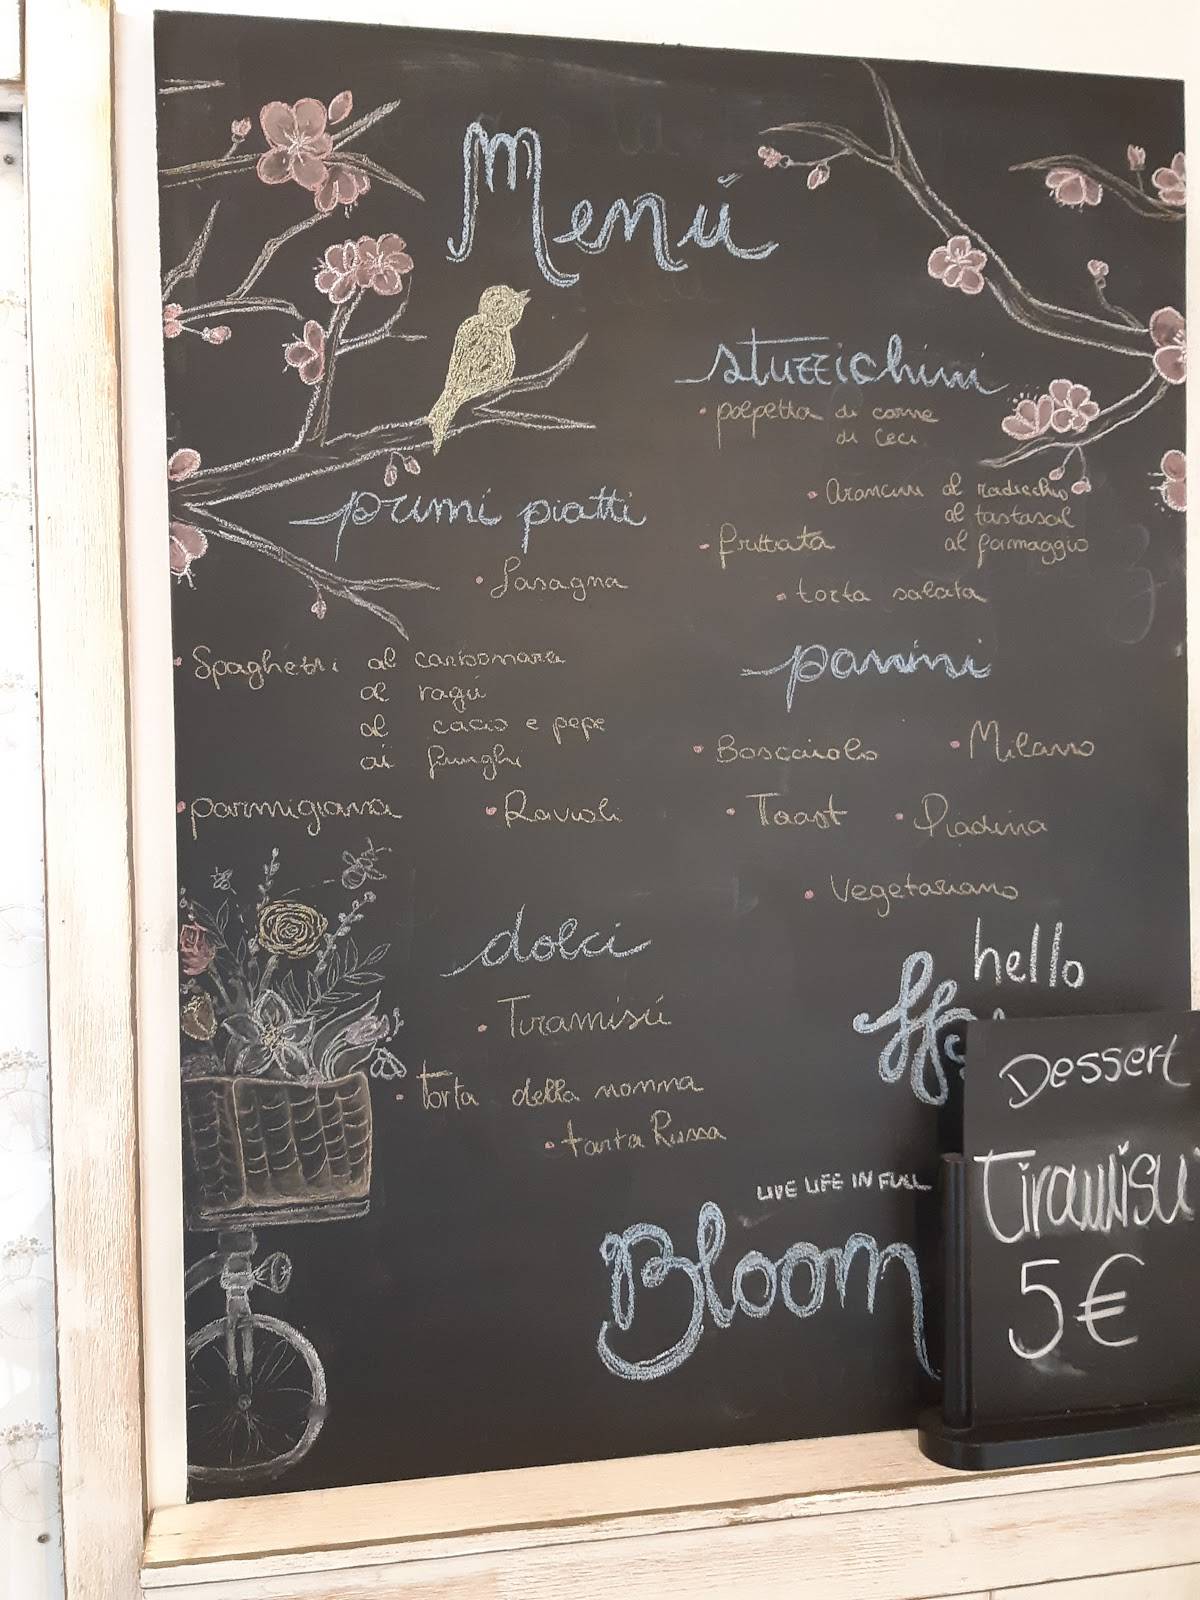 Menú
stuzzichini
• polpetta di carne
di ceci
• Arancini al radicchio
al tastasal
• frittata al formaggio
• torta salata
primi piatti
• Lasagna
• Spaghetti al carbonara
al ragú
al cacio e pepe
ai funghi
• parmigiana • Ravioli
panini
• Boscaiolo • Milano
• Toast • Piadina
• Vegetariano
dolci
• Tiramisú
• Torta della nonna
• torta Russa
hello
LIVE LIFE IN FULL
Bloom
Dessert
Tiramisu'
5€